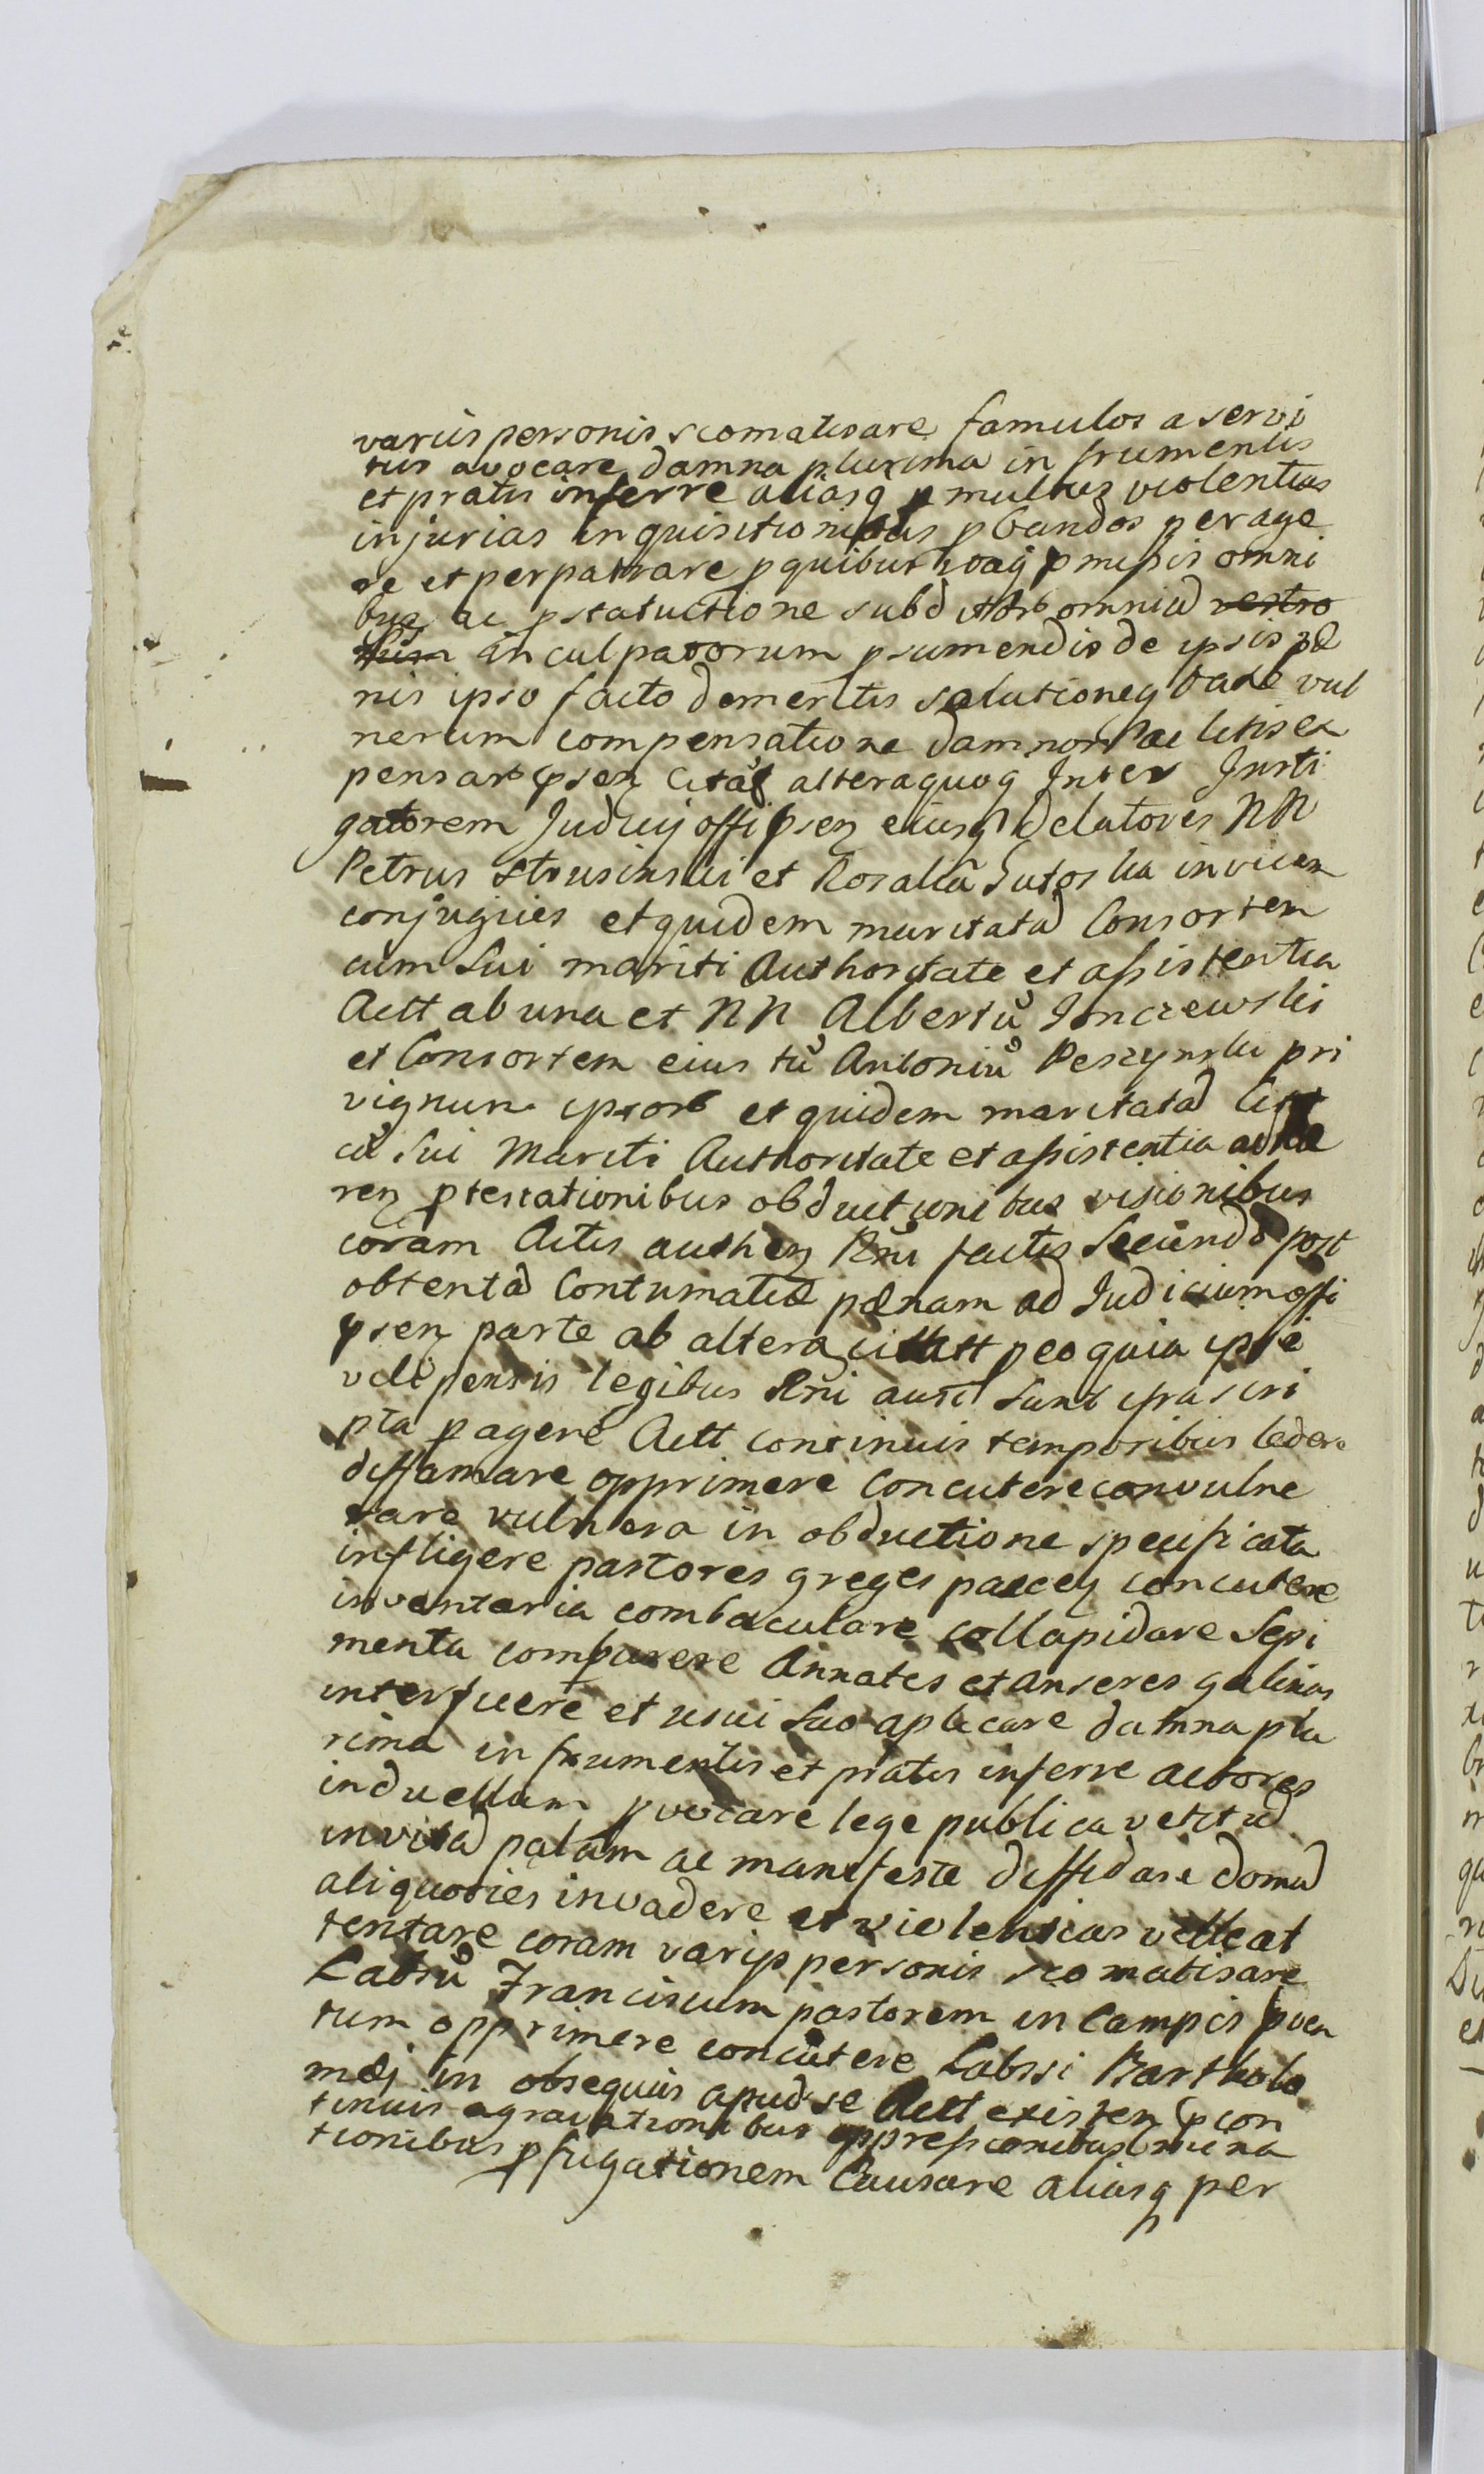 variis personis scomatisare famulos a servi
tiis avocare damna plurima in frumentis
et pratis inferre aliasq p multas violentias
injurias inquisitionibus pbandos perage
re et perpatrare p quibus itaq pmissis omni
bus ac pstatuctione subditor omniu vestro
rum inculpatorum psumendis de ipsis pæ
nis ipso facto demeritis solutioneq tale vul
nerum compensatione damnor ac litis ex
pensar psen Citat altera quoq Inter Insti
gatorem Judicij offi psen eiusq Delatores NN
Petrus Strusinski et Rosalia Sutorska invicem
conjugies et quidem maritatā Consortem
cum Sui mariti Authoritate et assistentia
Actt ab una et NN Albertŭ Jonczewski
et Consortem eius tŭ Antoniŭ Peszynski pri
vignum ipsor et quidem maritatā
cŭ sui Mariti Authoritate et assistentia
ren ptestationibus obductionibus visionibus
coram Actis authen Rni factis Secundo post
obtentā Contumatiæ pænam ad Judicium offi
psen parte ab altera citatt p eo quia ipsi
vilipensis legibus Rni ausi sunt ipra scri
pta pagere Actt continuis temporibus ledere
diffamare opprimere Concutere convulne
rare vulnera in obductione specificata
infligere pastores greges pascen concutere
inventaria combaculare collapidare Sepi
menta comburere Annates et anseres galinas
interficere et usui suo aplicare damna plu
rima in frumentis et pratis inferre actores
in duellum pvocare lege publica vetitū
invitā palam ac manifeste diffidare domū
aliquoties invadere et violentias velle at
tentare coram varijs personis scomatisare
Labsŭ Franciscum pastorem in Campis pven
tum opprimere concutere Labsi Bartholo
mæi in obsequiis apud se Actt existen pcon
tinuis agravationibus oppressionibus mina
tionibus pfugationem Causare aliasq per